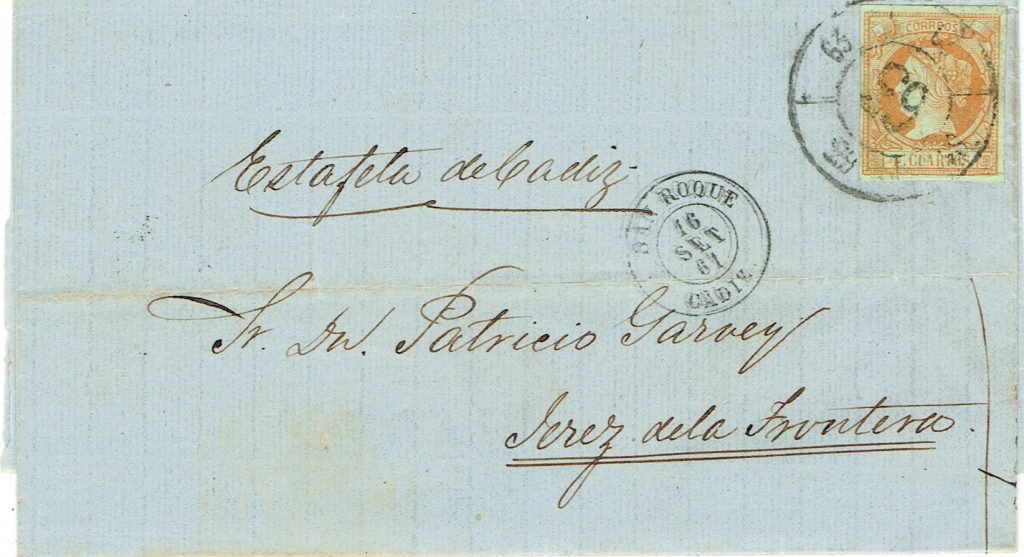 CORREOS
63
63
4 CUARTOS
Estafeta de Cadiz
SAN ROQUE
16
SET
61
CADIZ
Sr. Dn. Patricio Garvey
Jerez de la Frontera.